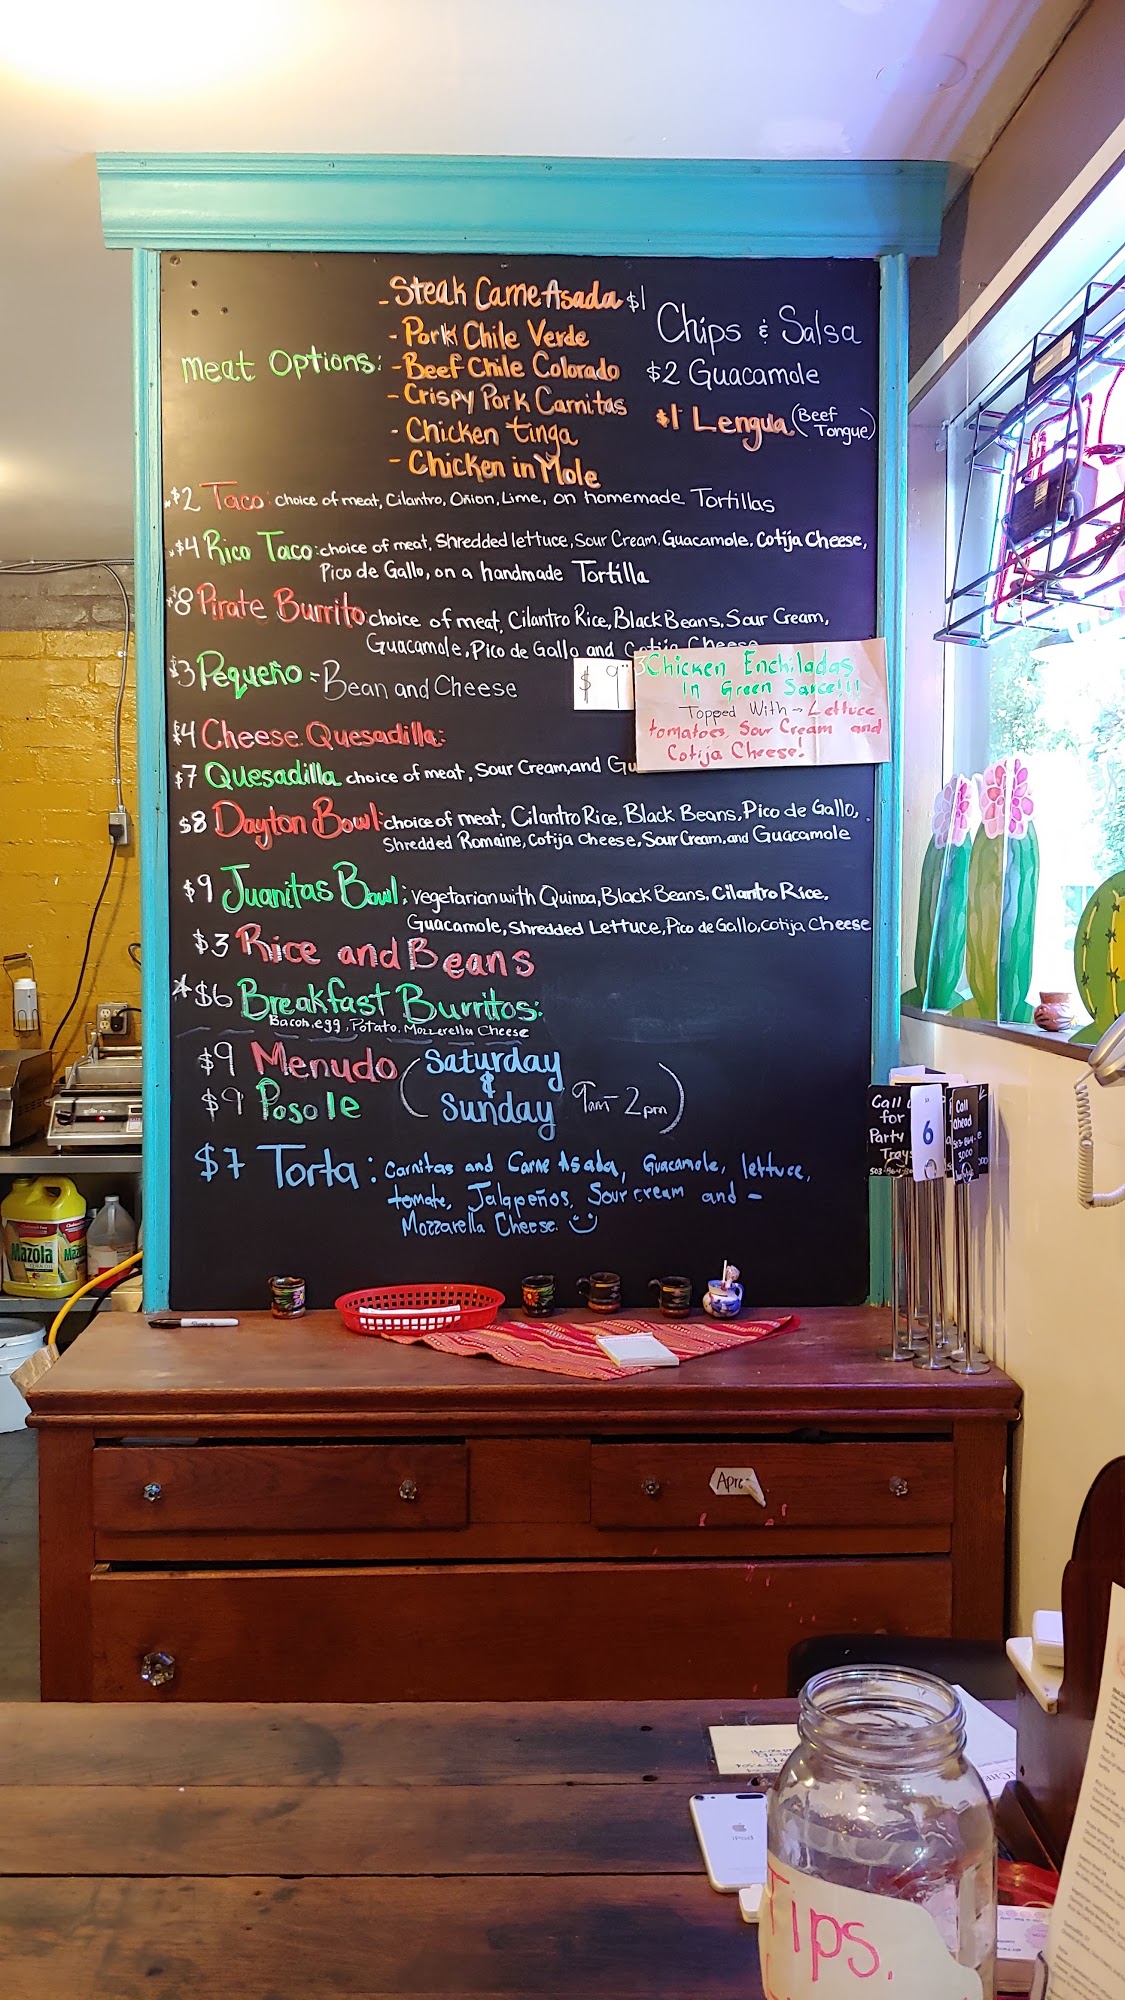 - Steak Carne Asada $1 Chips & Salsa
- Pork Chile Verde
Meat Options: - Beef Chile Colorado $2 Guacamole
- Crispy Pork Carnitas
$1 Lengua (Beef Tongue)
- Chicken tinga
- Chicken in Mole
$2 Taco: choice of meat, Cilantro, Onion, Lime, on homemade Tortillas
$4 Rico Taco: choice of meat, Shredded lettuce, Sour Cream, Guacamole, Cotija Cheese,
Pico de Gallo, on a handmade Tortilla
$8 Pirate Burrito: choice of meat, Cilantro Rice, Black Beans, Sour Cream,
Guacamole, Pico de Gallo and Cotija Cheese
$3 Pequeño = Bean and Cheese
$9
3 Chicken Enchiladas
In Green Sauce!!!
Topped With → Lettuce
tomatoes, Sour Cream and
Cotija Cheese!
$4 Cheese Quesadilla:
$7 Quesadilla choice of meat, Sour Cream, and Gu
$8 Dayton Bowl: choice of meat, Cilantro Rice, Black Beans, Pico de Gallo,
Shredded Romaine, Cotija Cheese, Sour Cream, and Guacamole
$9 Juanitas Bowl: vegetarian with Quinoa, Black Beans, Cilantro Rice,
Guacamole, Shredded Lettuce, Pico de Gallo, Cotija Cheese
$3 Rice and Beans
*$6 Breakfast Burritos:
Bacon, egg, Potato, Mozzerella Cheese
$9 Menudo (Saturday
&
$9 Posole Sunday 9am- 2pm)
$7 Torta: Carnitas and Carne Asada, Guacamole, lettuce,
tomate, Jalapeños, Sour cream and -
Mozzarella Cheese.
Call
for
Party
Trays
6
Call
ahead
503-864-
3000
Mazola
Apr
iPod
Tips.